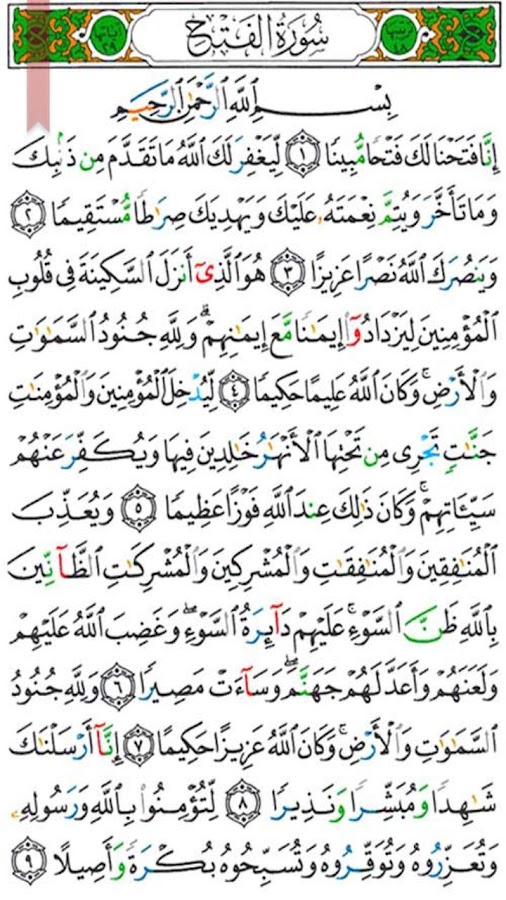 سُورَةُ الفَتْحِ
بِسْمِ اللَّهِ الرَّحْمَٰنِ الرَّحِيمِ
إِنَّا فَتَحْنَا لَكَ فَتْحًا مُّبِينًا ١ لِّيَغْفِرَ لَكَ اللَّهُ مَا تَقَدَّمَ مِن ذَنبِكَ
وَمَا تَأَخَّرَ وَيُتِمَّ نِعْمَتَهُ عَلَيْكَ وَيَهْدِيَكَ صِرَاطًا مُّسْتَقِيمًا ٢
وَيَنصُرَكَ اللَّهُ نَصْرًا عَزِيزًا ٣ هُوَ الَّذِي أَنزَلَ السَّكِينَةَ فِي قُلُوبِ
الْمُؤْمِنِينَ لِيَزْدَادُوا إِيمَانًا مَّعَ إِيمَانِهِمْ ۗ وَلِلَّهِ جُنُودُ السَّمَاوَاتِ
وَالْأَرْضِ ۚ وَكَانَ اللَّهُ عَلِيمًا حَكِيمًا ٤ لِّيُدْخِلَ الْمُؤْمِنِينَ وَالْمُؤْمِنَاتِ
جَنَّاتٍ تَجْرِي مِن تَحْتِهَا الْأَنْهَارُ خَالِدِينَ فِيهَا وَيُكَفِّرَ عَنْهُمْ
سَيِّئَاتِهِمْ ۚ وَكَانَ ذَٰلِكَ عِندَ اللَّهِ فَوْزًا عَظِيمًا ٥ وَيُعَذِّبَ
الْمُنَافِقِينَ وَالْمُنَافِقَاتِ وَالْمُشْرِكِينَ وَالْمُشْرِكَاتِ الظَّانِّينَ
بِاللَّهِ ظَنَّ السَّوْءِ ۚ عَلَيْهِمْ دَائِرَةُ السَّوْءِ ۖ وَغَضِبَ اللَّهُ عَلَيْهِمْ
وَلَعَنَهُمْ وَأَعَدَّ لَهُمْ جَهَنَّمَ ۖ وَسَاءَتْ مَصِيرًا ٦ وَلِلَّهِ جُنُودُ
السَّمَاوَاتِ وَالْأَرْضِ ۚ وَكَانَ اللَّهُ عَزِيزًا حَكِيمًا ٧ إِنَّا أَرْسَلْنَاكَ
شَاهِدًا وَمُبَشِّرًا وَنَذِيرًا ٨ لِّتُؤْمِنُوا بِاللَّهِ وَرَسُولِهِ
وَتُعَزِّرُوهُ وَتُوَقِّرُوهُ وَتُسَبِّحُوهُ بُكْرَةً وَأَصِيلًا ٩